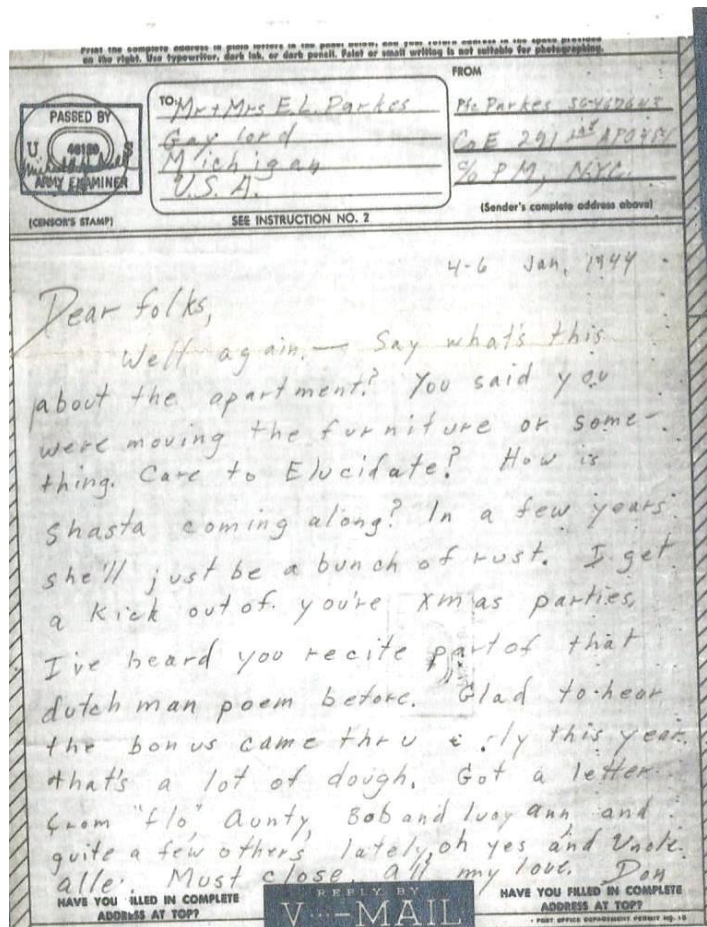 Print the complete address in plain letters in the panel below, and your return address in the space provided
on the right. Use typewriter, dark ink, or dark pencil. Faint or small writing is not suitable for photographing.
FROM
PASSED BY
U S
ARMY EXAMINER
(CENSOR'S STAMP)
TO Mr + Mrs E.L. Parkes
Gaylord
Michigan
U.S.A.
SEE INSTRUCTION NO. 2
Pfc Parkes
Co E 291 Inf APO 451
c/o PM, NYC.
(Sender's complete address above)
4-6 Jan, 1944
Dear folks,
Well again,— Say what's this
about the apartment? You said you
were moving the furniture or some-
thing. Care to Elucidate? How is
Shasta coming along? In a few years
she'll just be a bunch of rust. I get
a kick out of you're xmas parties,
I've heard you recite part of that
dutch man poem before. Glad to hear
the bonus came thru this year.
that's a lot of dough. Got a letter
from "flo," Aunty, Bob and Ann and
quite a few others lately, oh yes and Uncle
Must close, all my love. Don
HAVE YOU FILLED IN COMPLETE
ADDRESS AT TOP?
REPLY BY
V···—MAIL
HAVE YOU FILLED IN COMPLETE
ADDRESS AT TOP?
POST OFFICE DEPARTMENT PERMIT NO. 10